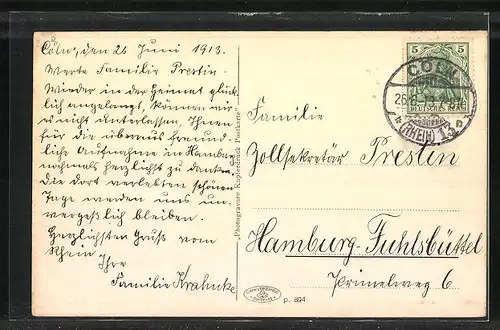 Cöln, den 26 Juni 1913.
Werte Familie Prestin.
Wieder in der Heimat glück-
lich angelangt, können wir
es nicht unterlassen, Ihnen
für die überaus freund-
liche Aufnahme in Hamburg
nochmals herzlichst zu danken,
die dort verlebten schönen
Tage werden uns un-
vergeßlich bleiben.
Herzlichsten Gruß vom
Rhein.
Ihre
Familie Krahnke
5 5
CÖLN
DEUTSCHES REICH
(RHEIN)
Familie
Zollsekretär Prestin
Hamburg-Fuhlsbüttel
Primelweg 6
p. 894